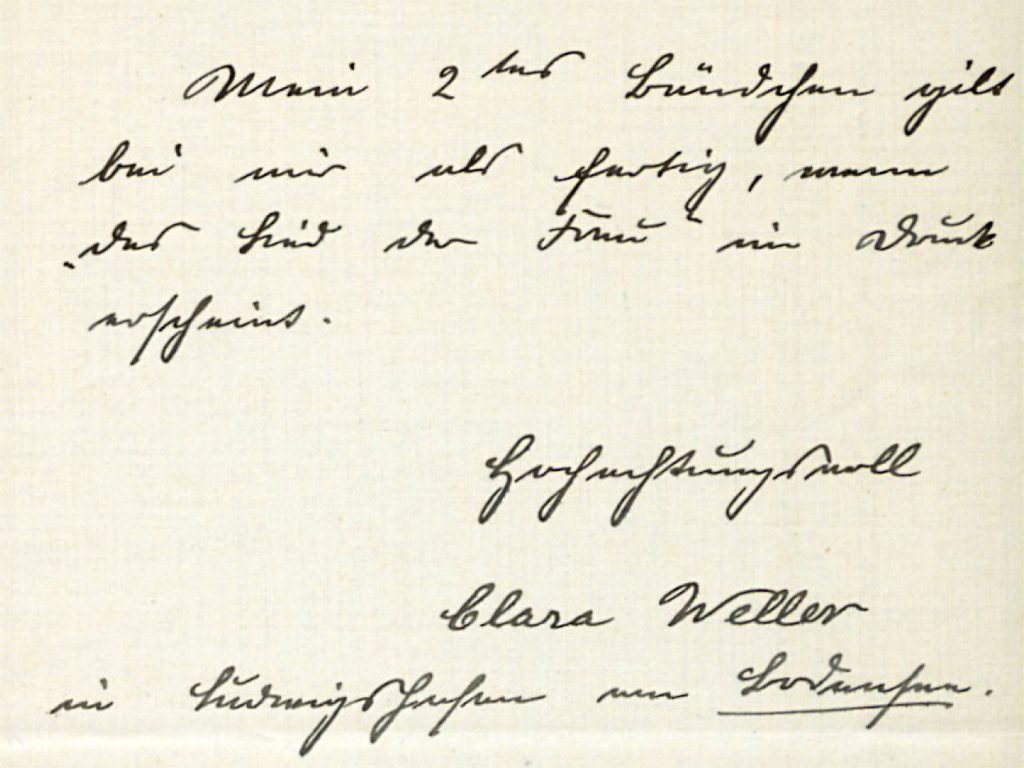 Mein 2tes Bändchen gilt
bei mir als fertig, wenn
„das Lied der Frau“ im Druck
erscheint.
Hochachtungsvoll
Clara Weller
in Ludwigshafen am Bodensee.